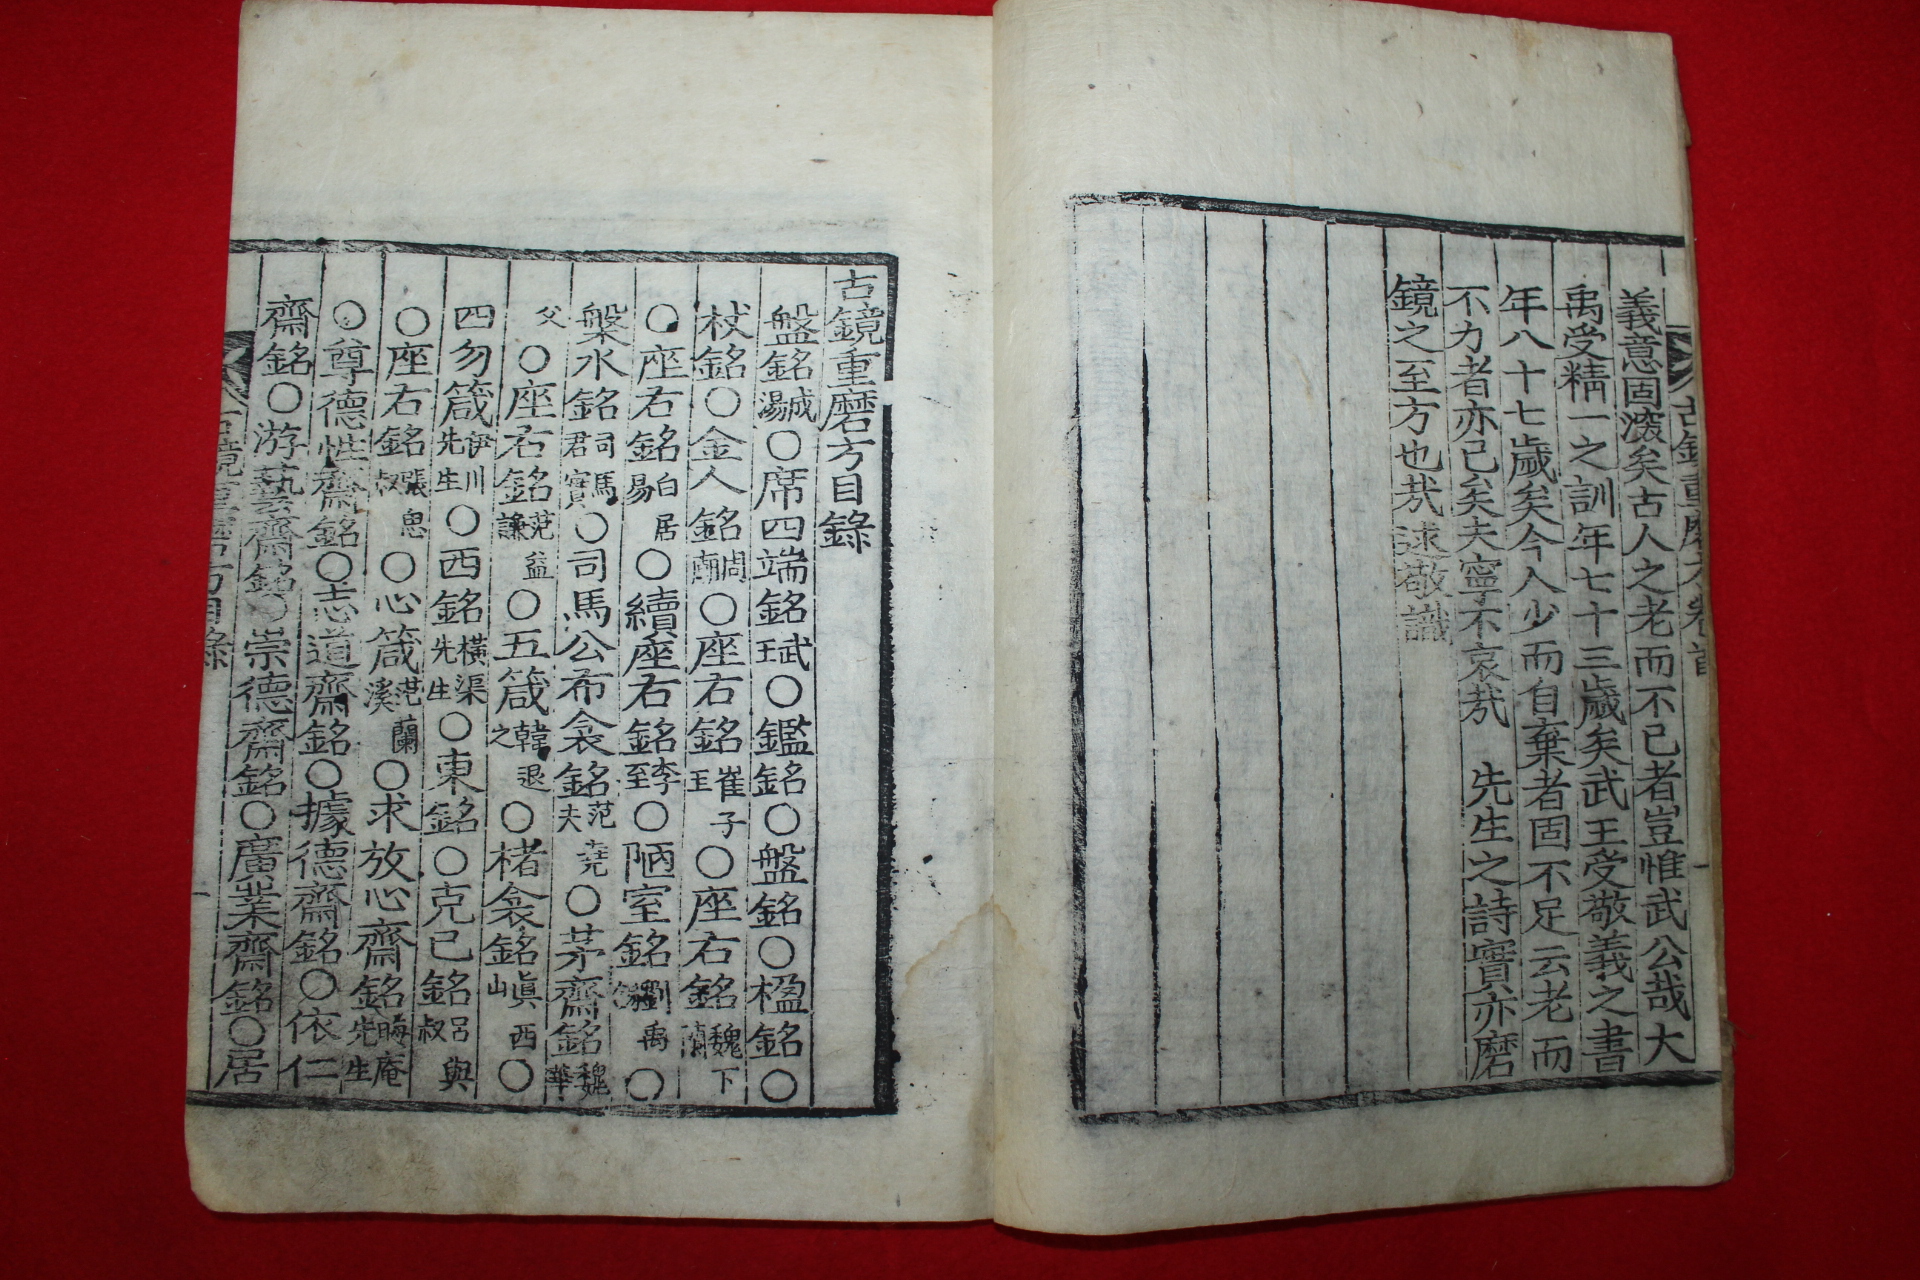 義意固深矣古人之老而不已者豈惟武公哉大
禹受精一之訓年七十三歲矣武王受敬義之書
年八十七歲矣今人少而自棄者固不足云老而
不力者亦已矣夫寧不哀哉 先生之詩實亦磨
鏡之至方也哉逑敬識
古鏡重磨方目錄
盤銘成湯○席四端銘武王○鑑銘○盤銘○楹銘○
杖銘○金人銘周廟○座右銘崔子玉○座右銘魏下蘭
○座右銘白居易○續座右銘李至○陋室銘劉禹錫○
槃水銘司馬君實○司馬公布衾銘范堯夫○茅齋銘魏華
父○座右銘范益謙○五箴韓退之○楮衾銘眞西山○
四勿箴伊川先生○西銘橫渠先生○東銘○克己銘呂與叔
○座右銘張思叔○心箴范蘭溪○求放心齋銘晦庵先生
○尊德性齋銘○志道齋銘○據德齋銘○依仁
齋銘○游藝齋銘○崇德齋銘○廣業齋銘○居